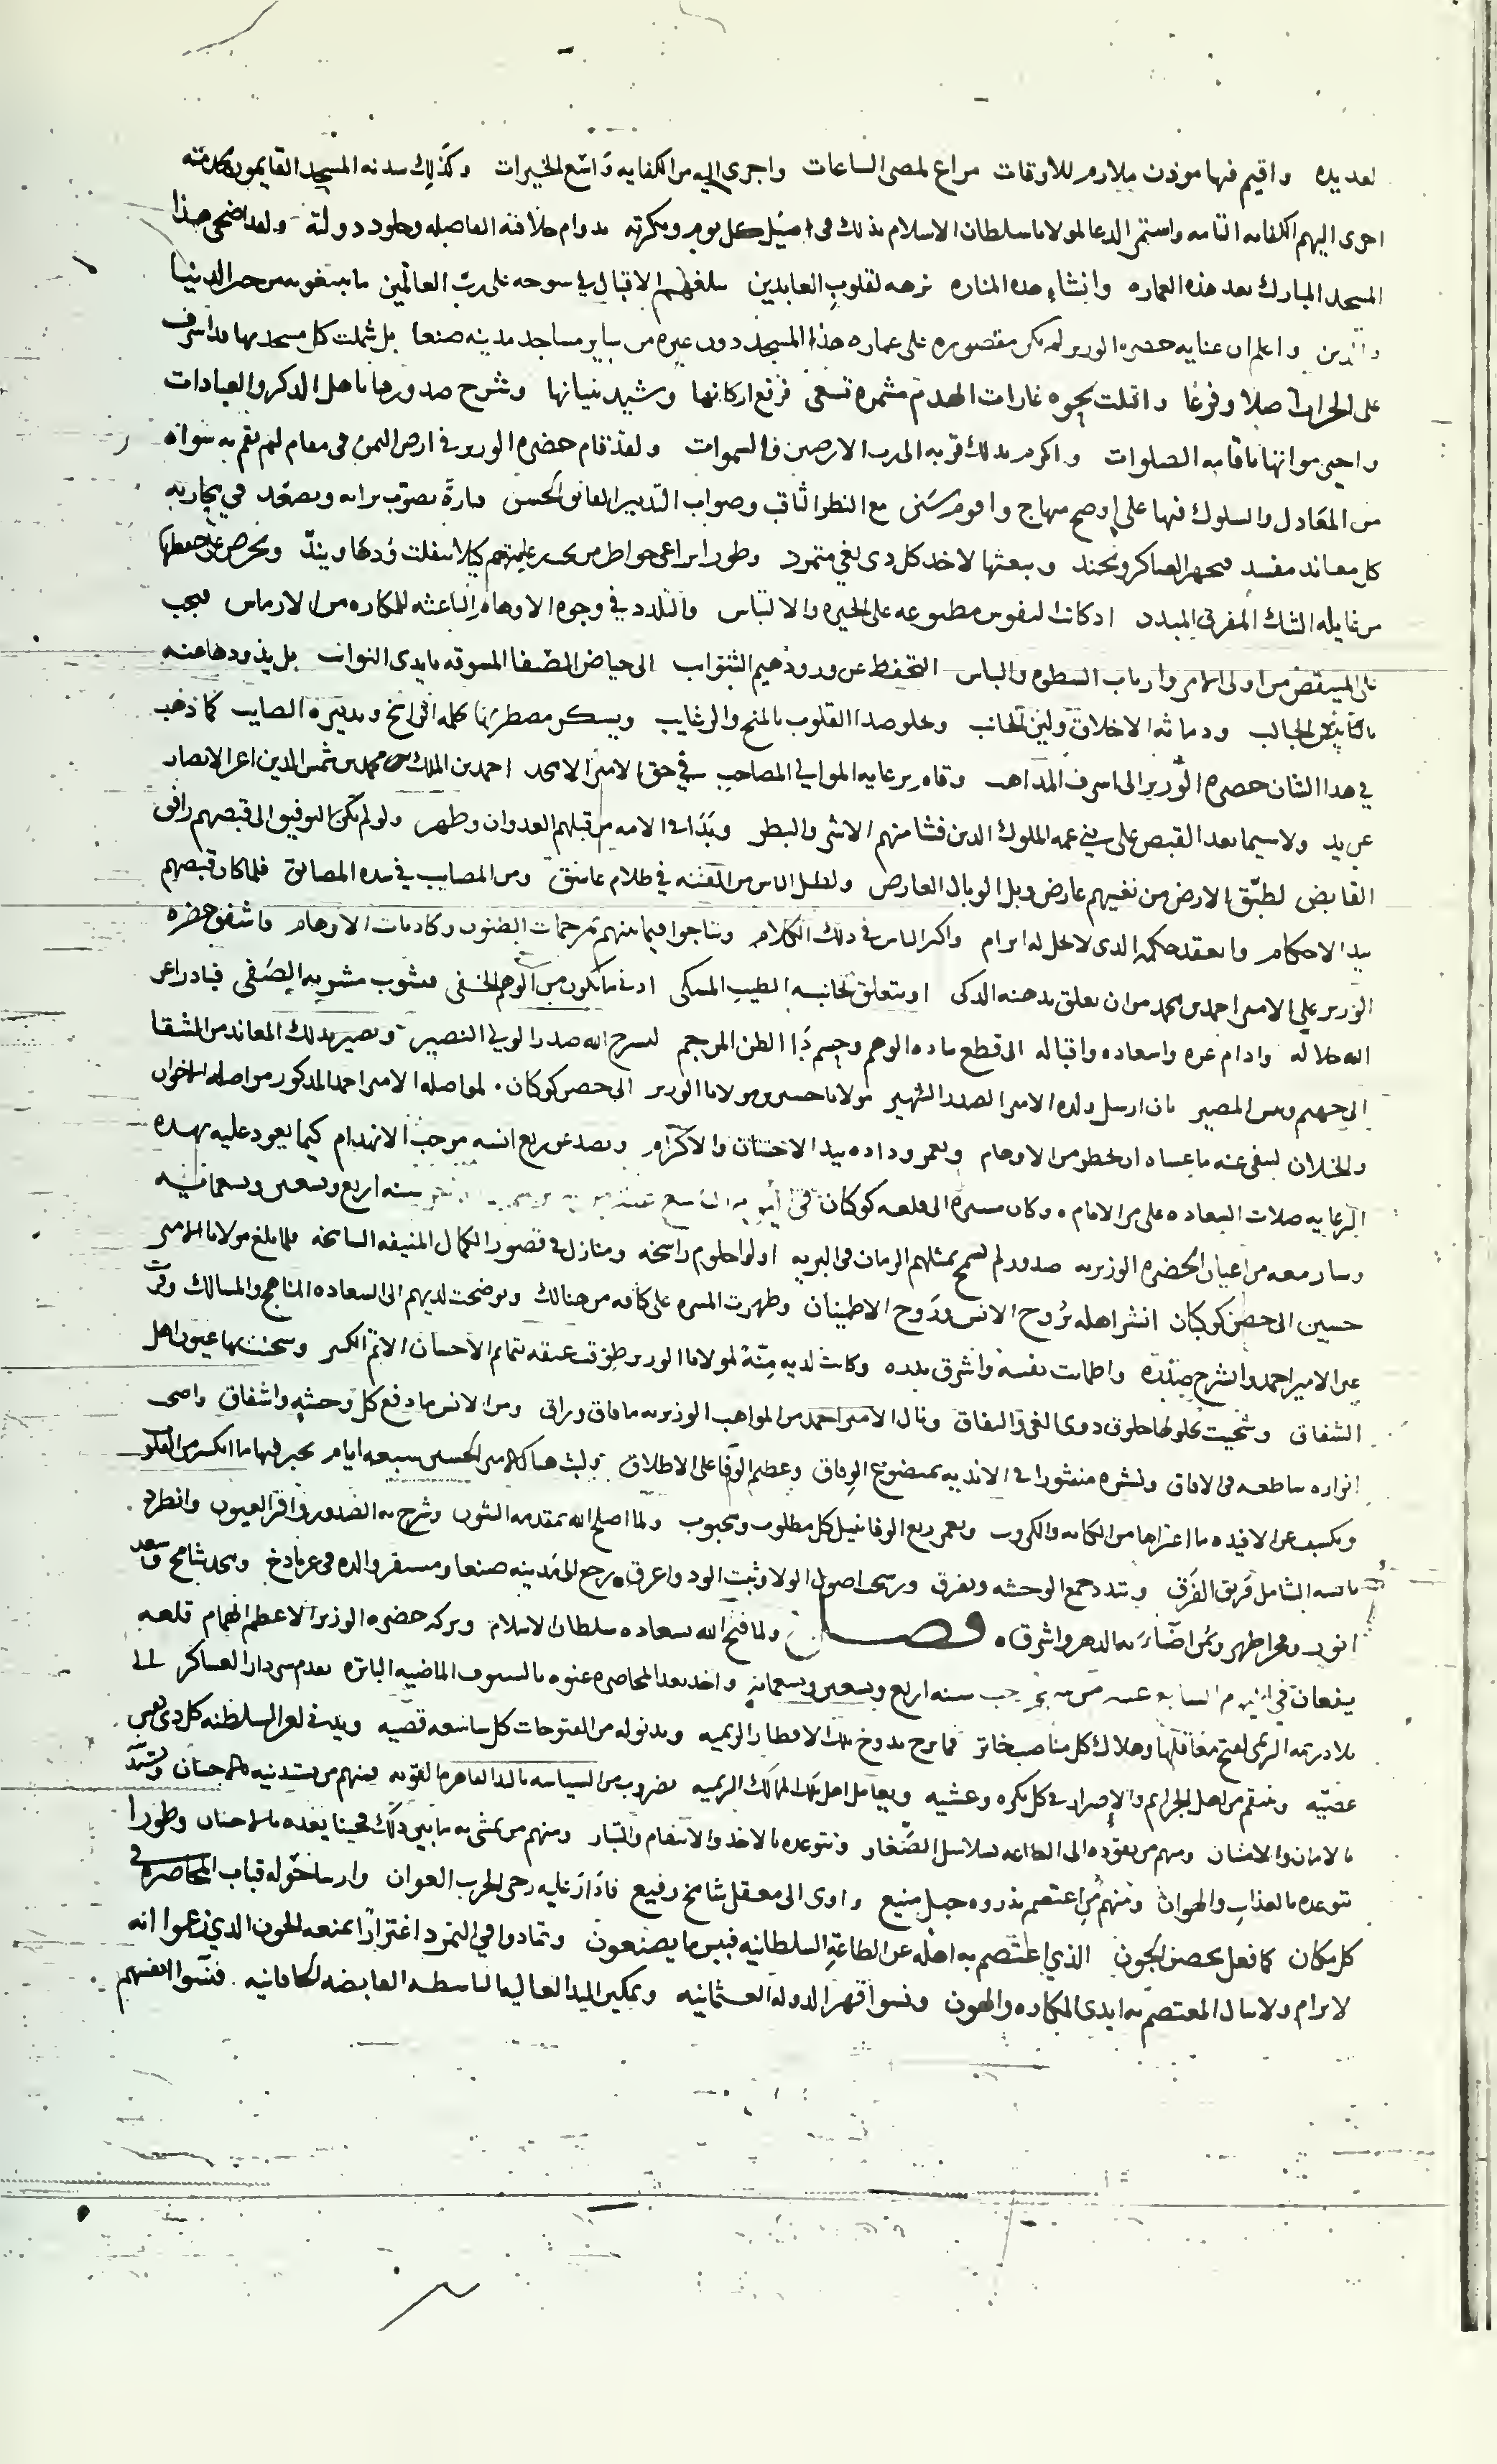 لعديده واقيم فيها موذن ملازم للاوقات مراع لمضي الساعات واجرى اليه من الكفايه واسع الخيرات وكذلك سدنه المسجد القايمون بخدمته
اجرى اليهم الكفايه التامه واستمر الدعا لمولانا سلطان الاسلام بذلك في اصيل كل يوم وبكرته بدوام خلافته الفاضله وخلود دولته ولقد اضحى هذا
المسجد المبارك بعد هذه العماره وانشاء هذه المناره نزهه لقلوب العابدين الاقبال في سوحه على رب العالمين ما يبتغونه من خير الدنيا
والدين واعلم ان عنايه حضره الوزير لم تكن مقصوره على عماره هذا المسجد دون غيره من ساير مساجد مدينه صنعا بل شملت كل مسجد بها قد اشرف
على الخراب اصلا وفرعا واقبلت نحوه غارات الهدم مشمره تسعى فرفع اركانها وشيد بنيانها وشرح صدورها باهل الذكر والعبادات
واحيى مواتها باقامه الصلوات واكرم بذلك قربه الى رب الارضين والسموات ولقد قام حضره الوزير في ارض اليمن في مقام لم يقم به سواه
من المعادل والسلوك فيها على اوضح منهاج واقوم سنن مع النظر الثاقب وصواب التدبير الفائق الحسن فتارة يصوب برايه ويصعد في محاربه
كل معاند مفسد فيجهز العساكر ويجند ويبعثها لاخذ كل ذي بغي متمرد وطورا يراعي خواطر من كيلا ينفلت ودها ويند ويحرص على حفظها
من غايله الشك المفرق المبدد اذ كانت النفوس مطبوعه على الحيره والالتباس والتلدد في وجوه الاوهام الباعثه للمكاره من الارماس فيجب
على المستيقض من اولى الامر وارباب السطوه والباس التحفظ عن ورود هيم الشوايب الى حياض الصفا المسوقه بايدي النوايب بل يذودها عنه
الجالب ودماثه الاخلاق ولين الجانب ويجلو صدا القلوب بالمنح والرغايب ويسكن كلما وتدبيره الصايب كما ذهب
في هذا الشان حضره الوزير الى اشرف المذاهب وقام برعايه الموالي المصاحب في حق الامير الامجد احمد بن الملك محمد بن شمس الدين اعز الانصار
عن يد ولاسيما بعد القبض على بني عمه الملوك الذين فشا منهم الاشر والبطر وبدا في الامه من قبلهم العدوان وظهر ولو لم يكن التوفيق الى قبضهم رافق
القابض لطبق الارض من بغيهم عارض وبل الوبال العارض ولظل الناس من الفتنه في ظلام غاسق ومن المصايب في شده المضايق فلما كان قبضهم
بيد الاحكام وانعقد حكمه الذي لا يحل له ابرام واكثر الناس في ذلك الكلام وتناجوا فيما بينهم بمرجمات الظنون وكاذبات الاوهام فاشفق حضره
الوزير على الامير احمد بن محمد من ان يعلق بذهنه الذكي او يتعلق بجانبه الطيب المسكي ادنى ما يكون من الوهم الخفي فيشوب مشربه الصفي فبادر اعز
الله جلاله وادام عزه واسعاده واقباله الى قطع ماده الوهم وحسم داء الظن المرجم ليشرح الله صدر الولي النصير ويصير بذلك المعاند من الشقا
الى جهنم وبيس المصير بان ارسل ولده الامير الصدر الشهير مولانا حسين بن مولانا الوزير الى حصن كوكبان لمواصله الامير احمد المذكور مواصله الاخوان
والخلان لينفي عنه ما عساه ان يخطر من الاوهام ويعمر وداده بيد الاختنان والاكرام ويصد عن ربع انسه موجب الانهدام كيما يعود عليه بهذه
الرعايه صلات السعاده على مر الايام وكان مسيره الى قلعه كوكبان في سنه اربع وتسعين وتسعمائيه
وسار معه من اعيان الحضره الوزيريه صدور لم يسمح بمثلهم الزمان في البريه اولوا حلوم راسخه ومنازل في قصور الكمال المنيفه الشامخه فلما بلغ مولانا الامير
حسين الى حصن كوكبان انشر اهله بروح الانس وروح الاطمينان وظهرت المسره على كافه من هنالك وتوضحت لديهم الى السعاده المناهج والمسالك وقرت
عين الامير احمد وانشرح صدره واطمانت نفسه واشرق بلده وكانت لديه مِنّة لمولانا الوزير طوقت عنقه بتمايم الاحسان الاتم الاكبر وسخنت بها عيون اهل
الشقاق وشجيت بحلولها حلوق ذوى البغي والنفاق ونال الامير احمد من المواهب الوزيريه ما فاق وراق ومن الانس ما دفع كل وحشه واشفاق واضحى
انواره ساطعه في الافاق ونشره منشورا في الانديه بمتضوع الوفاق وعظيم الوفا على الاطلاق ولبث هناك الامير الحسين سبعه ايام يجبر فيها ما انكسر من القلوب
ويكشف عن الافيده ما اعتراها من الكابه والكروب ويعمر ربع الوفا بنيل كل مطلوب ومحبوب ولما اصلح الله بمقدمه الشون وشرح به الصدور واقر العيون وانطرد
بانسه الشامل فريق الفرق وتبدد جمع الوحشه وتفرق ورسخت اصول الولا وثبت الود واعرق رجع الى مدينه صنعا ومستقر والده في عز باذخ ومجد شامخ وسعد
انور وفخر اظهر ويمن اضاء به الدهر واشرق فصل ولما فتح الله بسعاده سلطان الاسلام وبركه حضره الوزير الاعظم الهمام قلعه
يفعان في سنه اربع وتسعين وتسعمائة واخذ بعد المحاصره عنوه بالسيوف الماضيه الباتره تقدم سردار العساكر الى
بلاد ريمه لفتح معاقلها وهلاك كل مناصب خاتر فما برح يدوخ تلك الاقطار الريميه ويدنو له من الفتوحات كل شاسعه قصيه ويلين لعز السلطنه كل ذي نفس
عصيه وينتقم من اهل الجرايم والاصرار في كل بكره وعشيه ويعامل اهل تلك الممالك الريميه بضروب من السياسه باليد القاهره القويه فمنهم من يستدنيه بالاحسان
بالامان والامتنان ومنهم من يقوده الى الطاعه بسلاسل الصغار ويتوعده بالاخذ والانتقام والتبار ومنهم من يمشي به ما بين ذلك فحينا يعده بالاحسان وطورا
يتوعده بالعذاب والهوان ومنهم من اعتصم بذروه جبل منيع واوى الى معقل شامخ رفيع فادار عليه رحى الحرب العوان وارسا حوله قباب المحاصره في
كل مكان كما فعل بحصن الجون الذي اعتصم به اهله عن الطاعة السلطانيه فبيس ما يصنعون وتمادوا في التمرد اغترارا بمنعه الجون الذي زعموا انه
لا يرام ولا ينال المعتصم به ايدى المكاره والهون ونسوا قهر الدوله العثمانيه وتمكين اليد العاليه الباسطه القابضه الخاقانيه فنسوا انفسهم